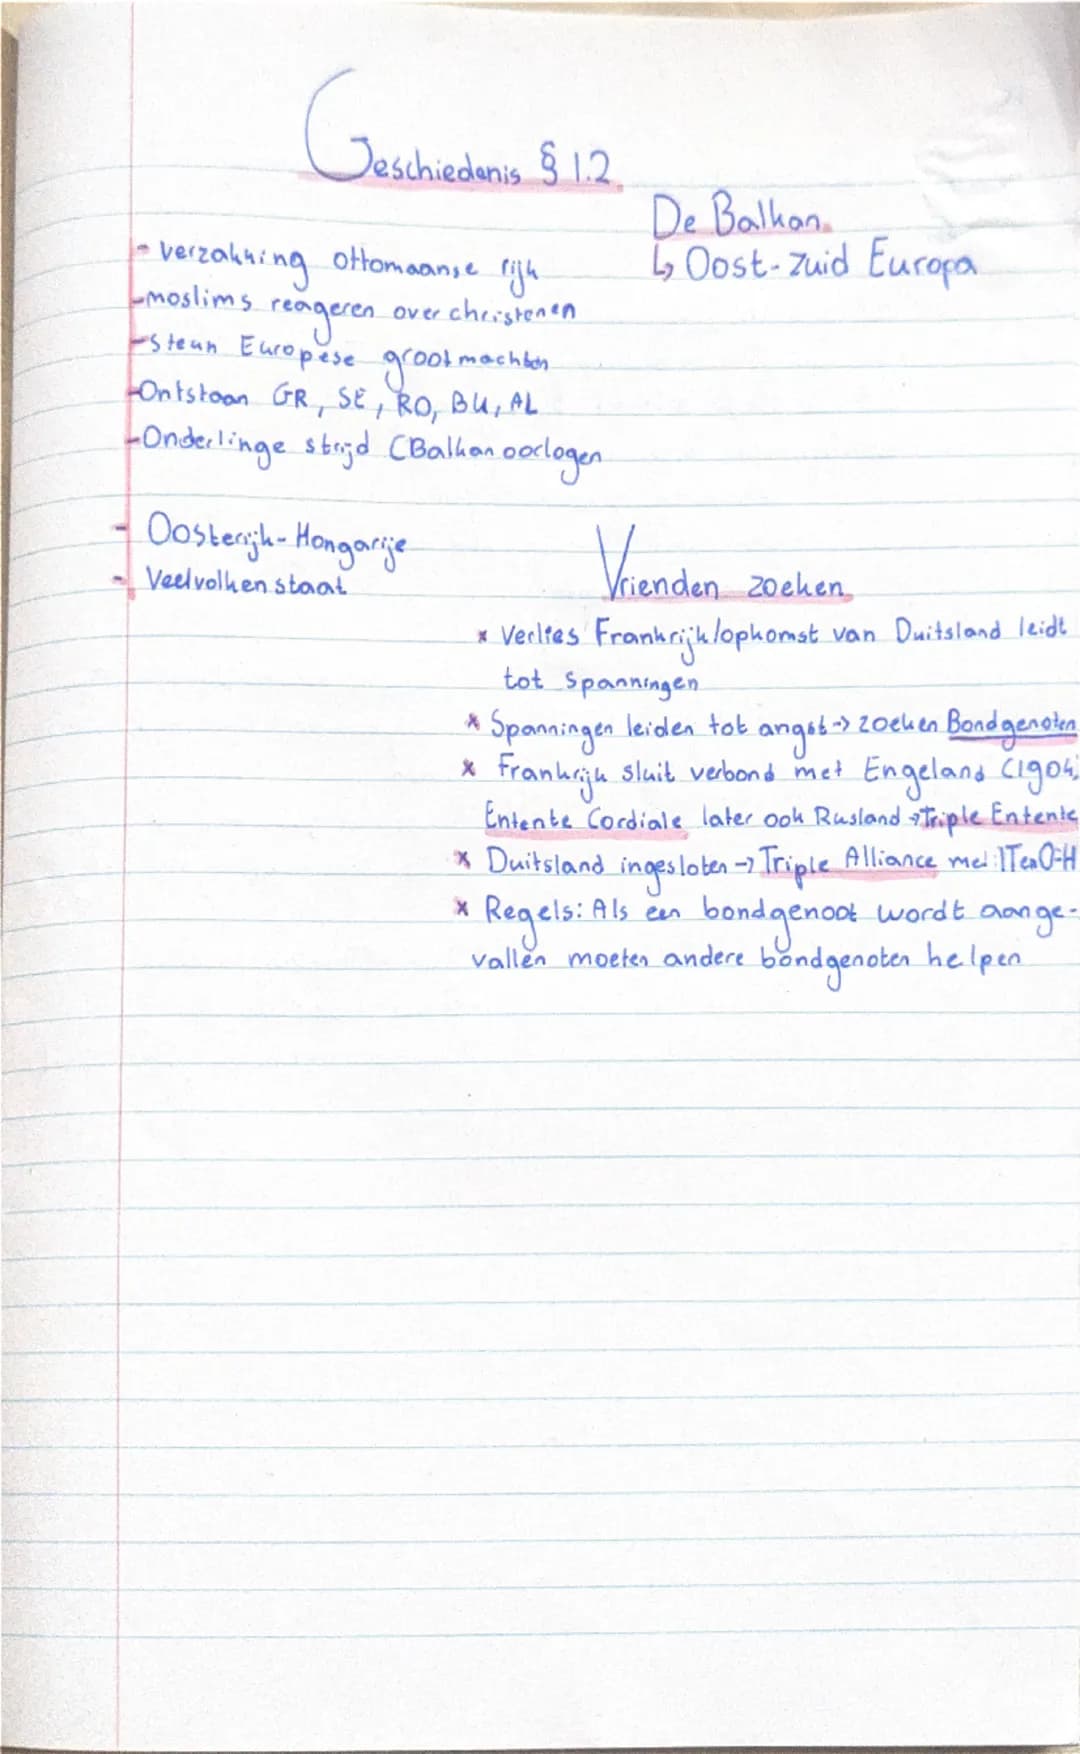 Geschiedenis § 1.2
De Balkan
↳ Oost-Zuid Europa
- verzakking ottomaanse rijk
- moslims reageren over christenen
- steun Europese grootmachten
- Ontstaan GR, SE, RO, BU, AL
- Onderlinge strijd (Balkan oorlogen
- Oosterijk-Hongarije
- Veelvolkenstaat
Vrienden zoeken
x Verlies Frankrijk/opkomst van Duitsland leidt
tot spanningen
x Spanningen leiden tot angst -> zoeken Bondgenoten
x Frankrijk sluit verbond met Engeland (1904;
Entente Cordiale later ook Rusland → Triple Entente
x Duitsland ingesloten -> Triple Alliance met IT en O-H
x Regels: Als een bondgenoot wordt aange-
vallen moeten andere bondgenoten helpen